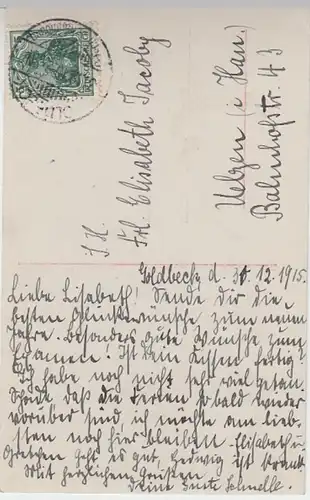 I. H.
Frl. Elisabeth Jacoby
Uelzen (i Han.)
Bahnhofstr. 43
Goldbeck, d. 30.12.1915.
Liebe Lisabeth! Sende dir die
besten Glückswünsche zum neuen
Jahre. Besonders gute Wünsche zum
Examele. Ist dein Kissen fertig?
Ich habe noch nicht sehr viel getan.
Schade daß die Ferien sobald wieder
vorüber sind ich möchte am lieb-
sten noch hier bleiben. Elisabeth u.
Gretchen geht es gut, Hedwig ist krank.
Mit herzlichen Grüßen
Deine Grete Schmelle.